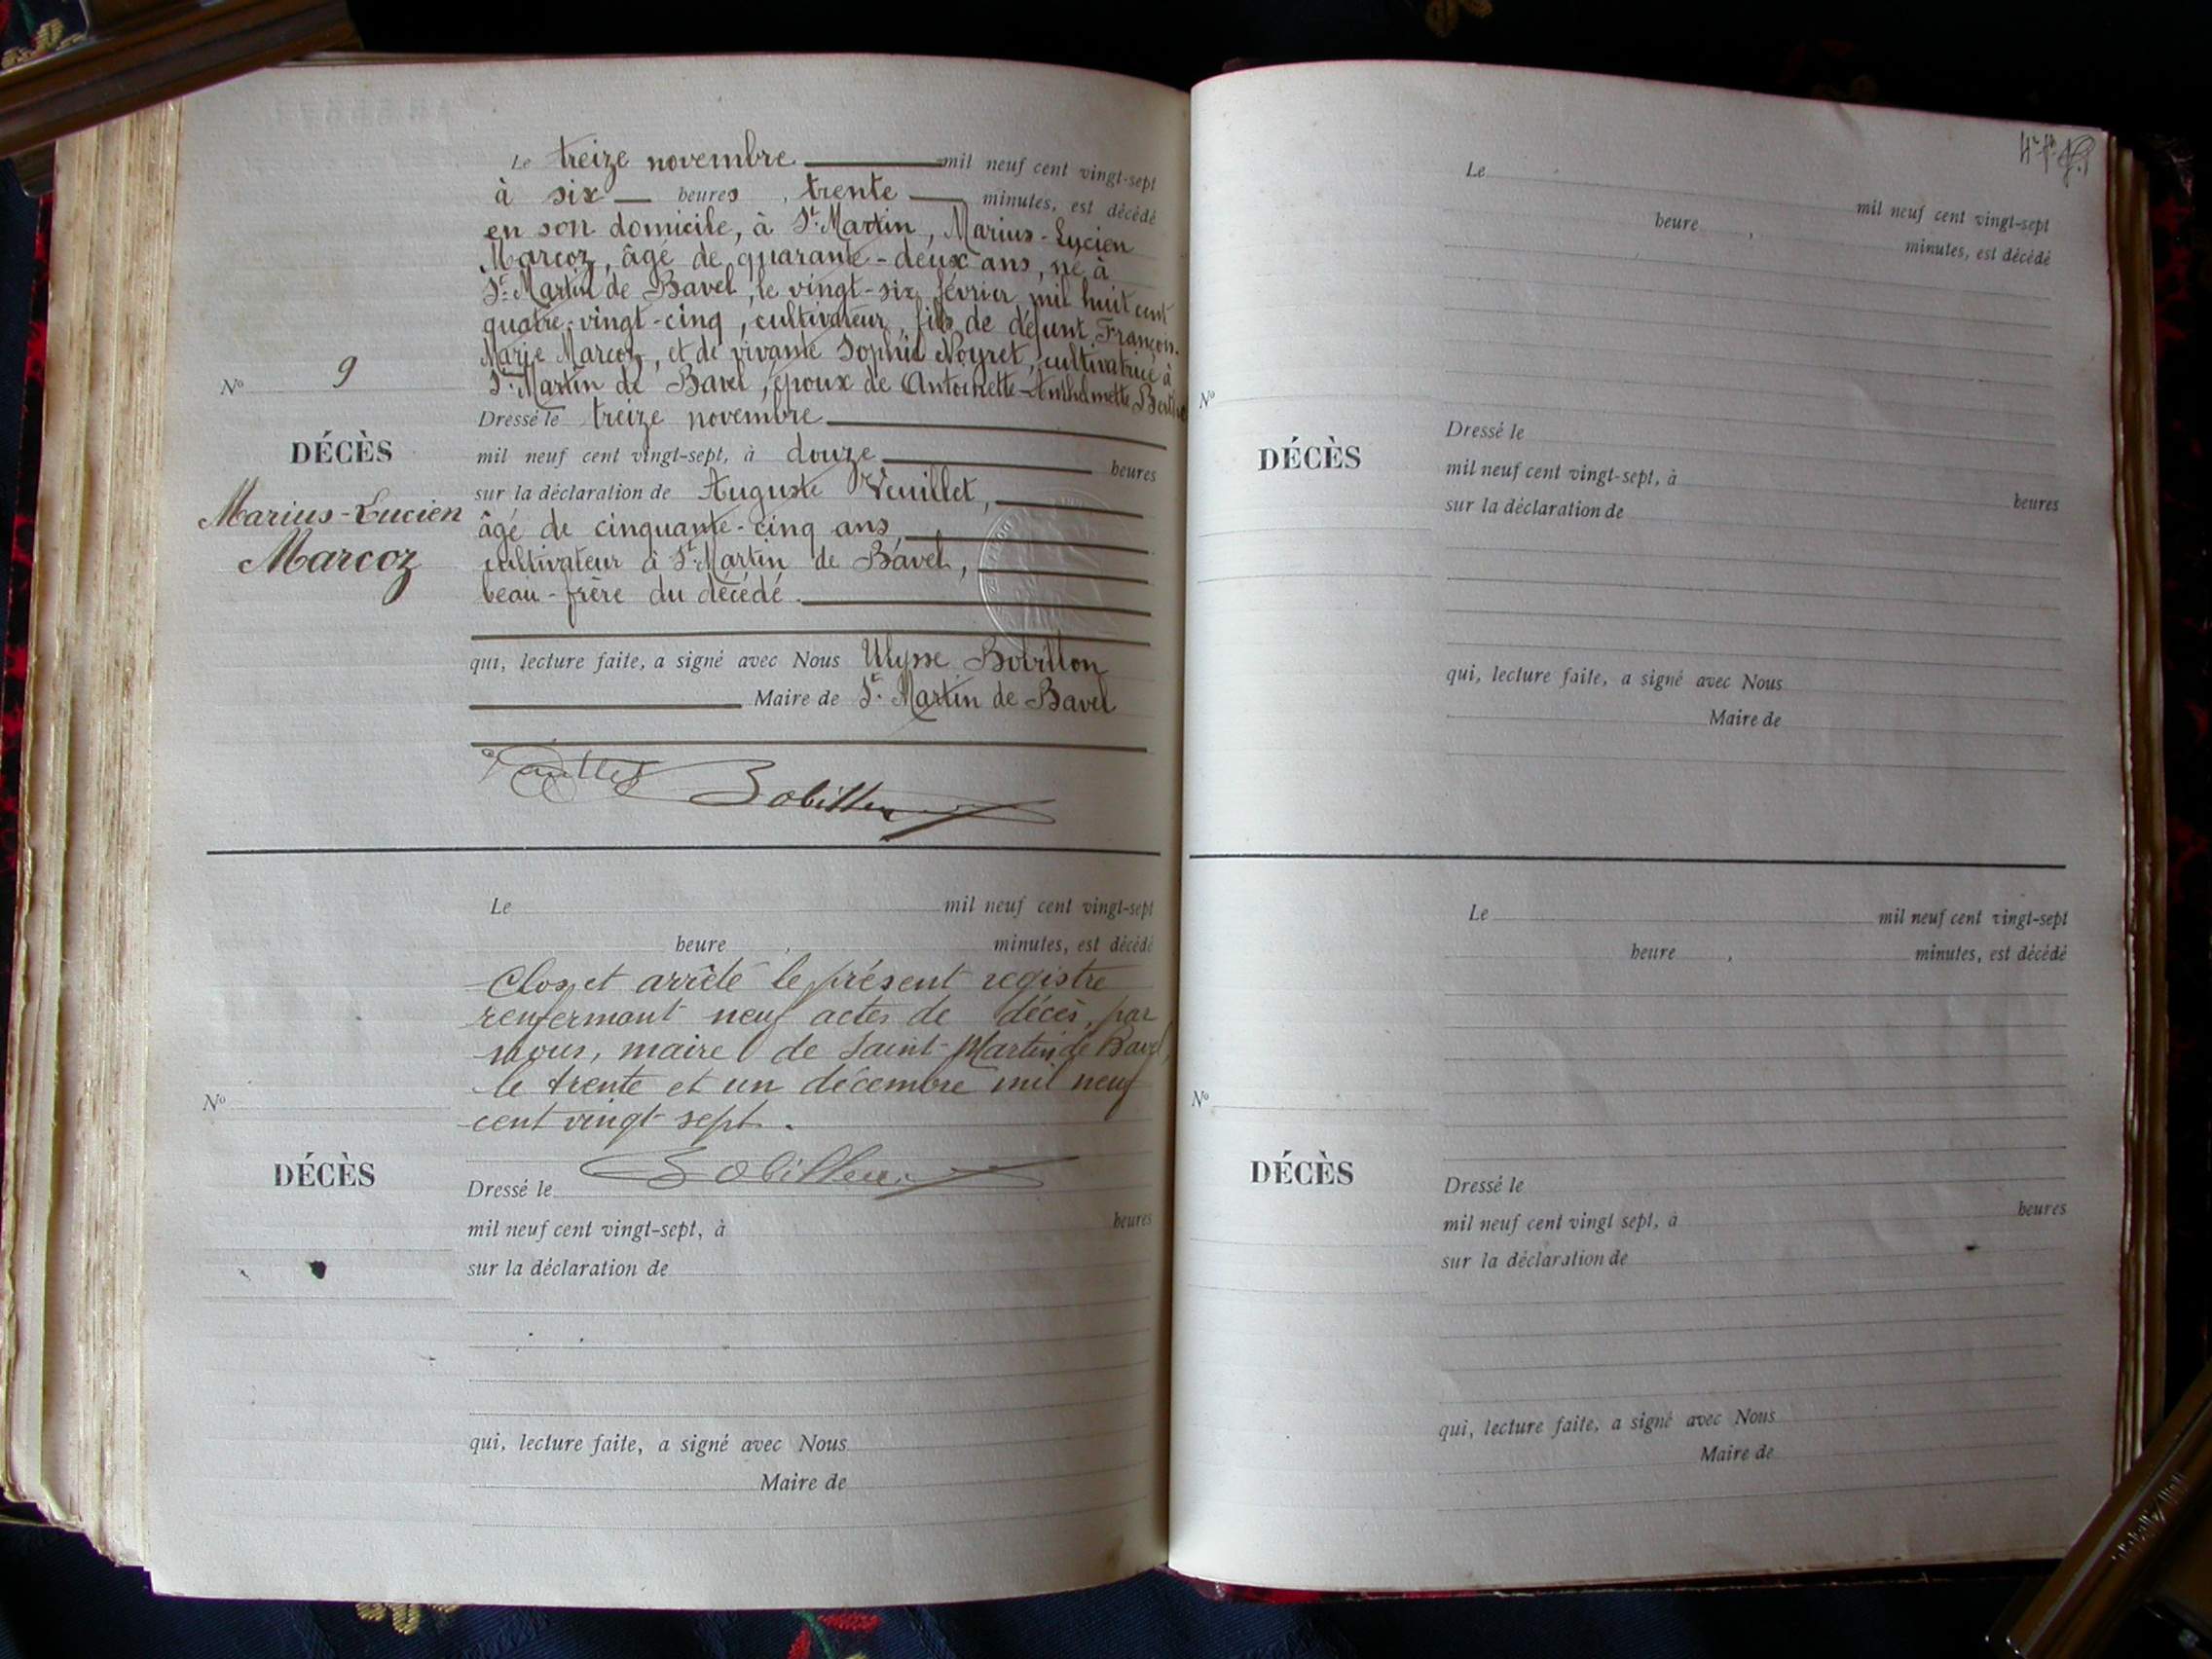 Le treize novembre mil neuf cent vingt-sept
à six heures, trente minutes, est décédé
en son domicile, à St. Martin, Marius-Lucien
Marcoz, âgé de quarante-deux ans, né à
St. Martin de Bavel, le vingt-six février mil huit cent
quatre-vingt-cinq, cultivateur, fils de défunt François.
Marie Marcoz, et de vivante Sophie Noyret, cultivatrice à
St. Martin de Bavel, époux de Antoinette
Dressé le treize novembre
mil neuf cent vingt-sept, à douze heures
sur la déclaration de Auguste Veuillet,
âgé de cinquante-cinq ans,
cultivateur à St. Martin de Bavel,
beau-frère du décédé.
qui, lecture faite, a signé avec Nous Ulysse Bobillon
Maire de St. Martin de Bavel
Bobillon
No 9
DÉCÈS
Marius-Lucien
Marcoz
Le mil neuf cent vingt-sept
heure , minutes, est décédé
Clos et arrêté le présent registre
renfermant neuf actes de décès, par
nous, maire de Saint-Martin de Bavel,
le trente et un décembre mil neuf
cent vingt sept.
Bobillon
Dressé le
mil neuf cent vingt-sept, à heures
sur la déclaration de
qui, lecture faite, a signé avec Nous
Maire de
No
DÉCÈS
Le mil neuf cent vingt-sept
heure , minutes, est décédé
No
DÉCÈS
Dressé le
mil neuf cent vingt-sept, à heures
sur la déclaration de
qui, lecture faite, a signé avec Nous
Maire de
Le mil neuf cent vingt-sept
heure , minutes, est décédé
No
DÉCÈS
Dressé le
mil neuf cent vingt sept, à heures
sur la déclaration de
qui, lecture faite, a signé avec Nous
Maire de